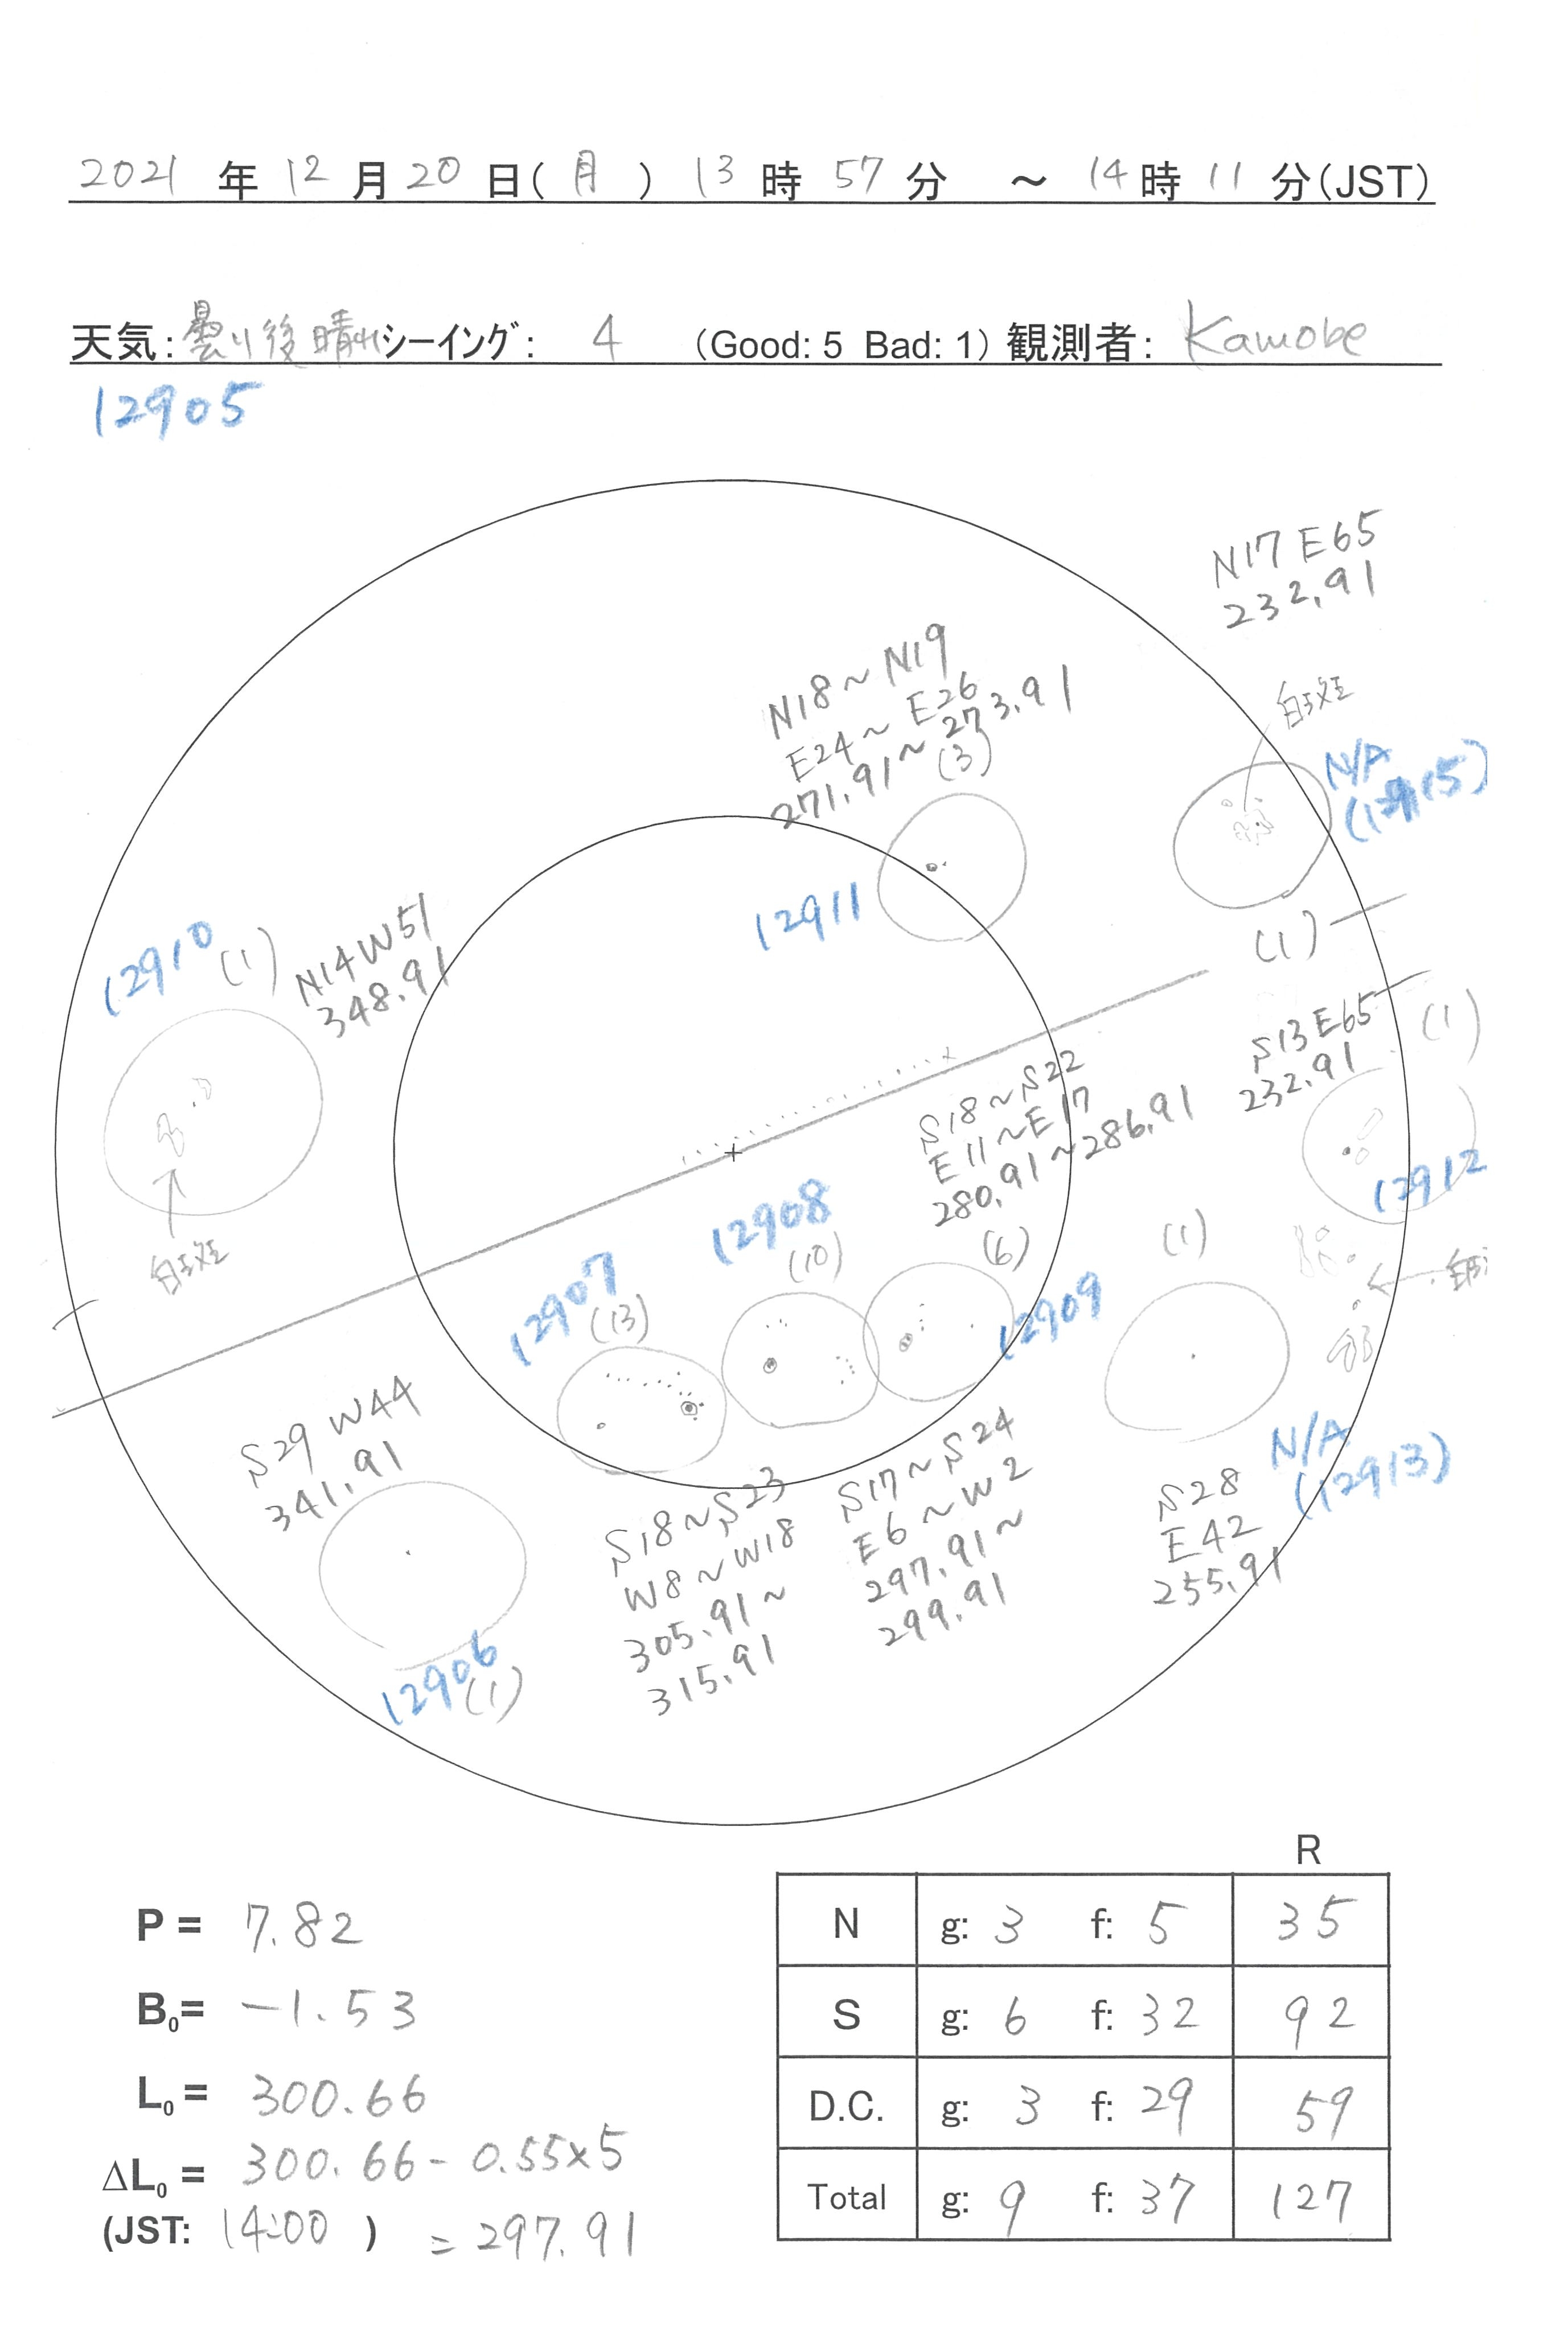 2021 年 12 月 20 日( 月 ) 13 時 57 分 ～ 14 時 11 分(JST)
天気: 曇り後晴れ シーイング: 4 (Good: 5 Bad: 1) 観測者: Kamobe
12905
N17 E65
232.91
白斑
N/A
(12915)
(1)
N18～N19
E24～E26
271.91～273.91
(3)
12911
12910
(1)
N14W51
348.91
白斑
S13E65
232.91
(1)
12912
S18～S22
E11～E17
280.91～286.91
(6)
12909
12908
(10)
12907
(13)
(1)
N/A
(12913)
S28
E42
255.91
S29 W44
341.91
12906
(1)
S18～S23
W8～W18
305.91～
315.91
S17～S24
E6～W2
297.91～
299.91
R
N g: 3 f: 5 35
S g: 6 f: 32 92
D.C. g: 3 f: 29 59
Total g: 9 f: 37 127
P = 7.82
B₀= -1.53
L₀ = 300.66
ΔL₀ = 300.66 - 0.55×5
(JST: 14:00 ) = 297.91